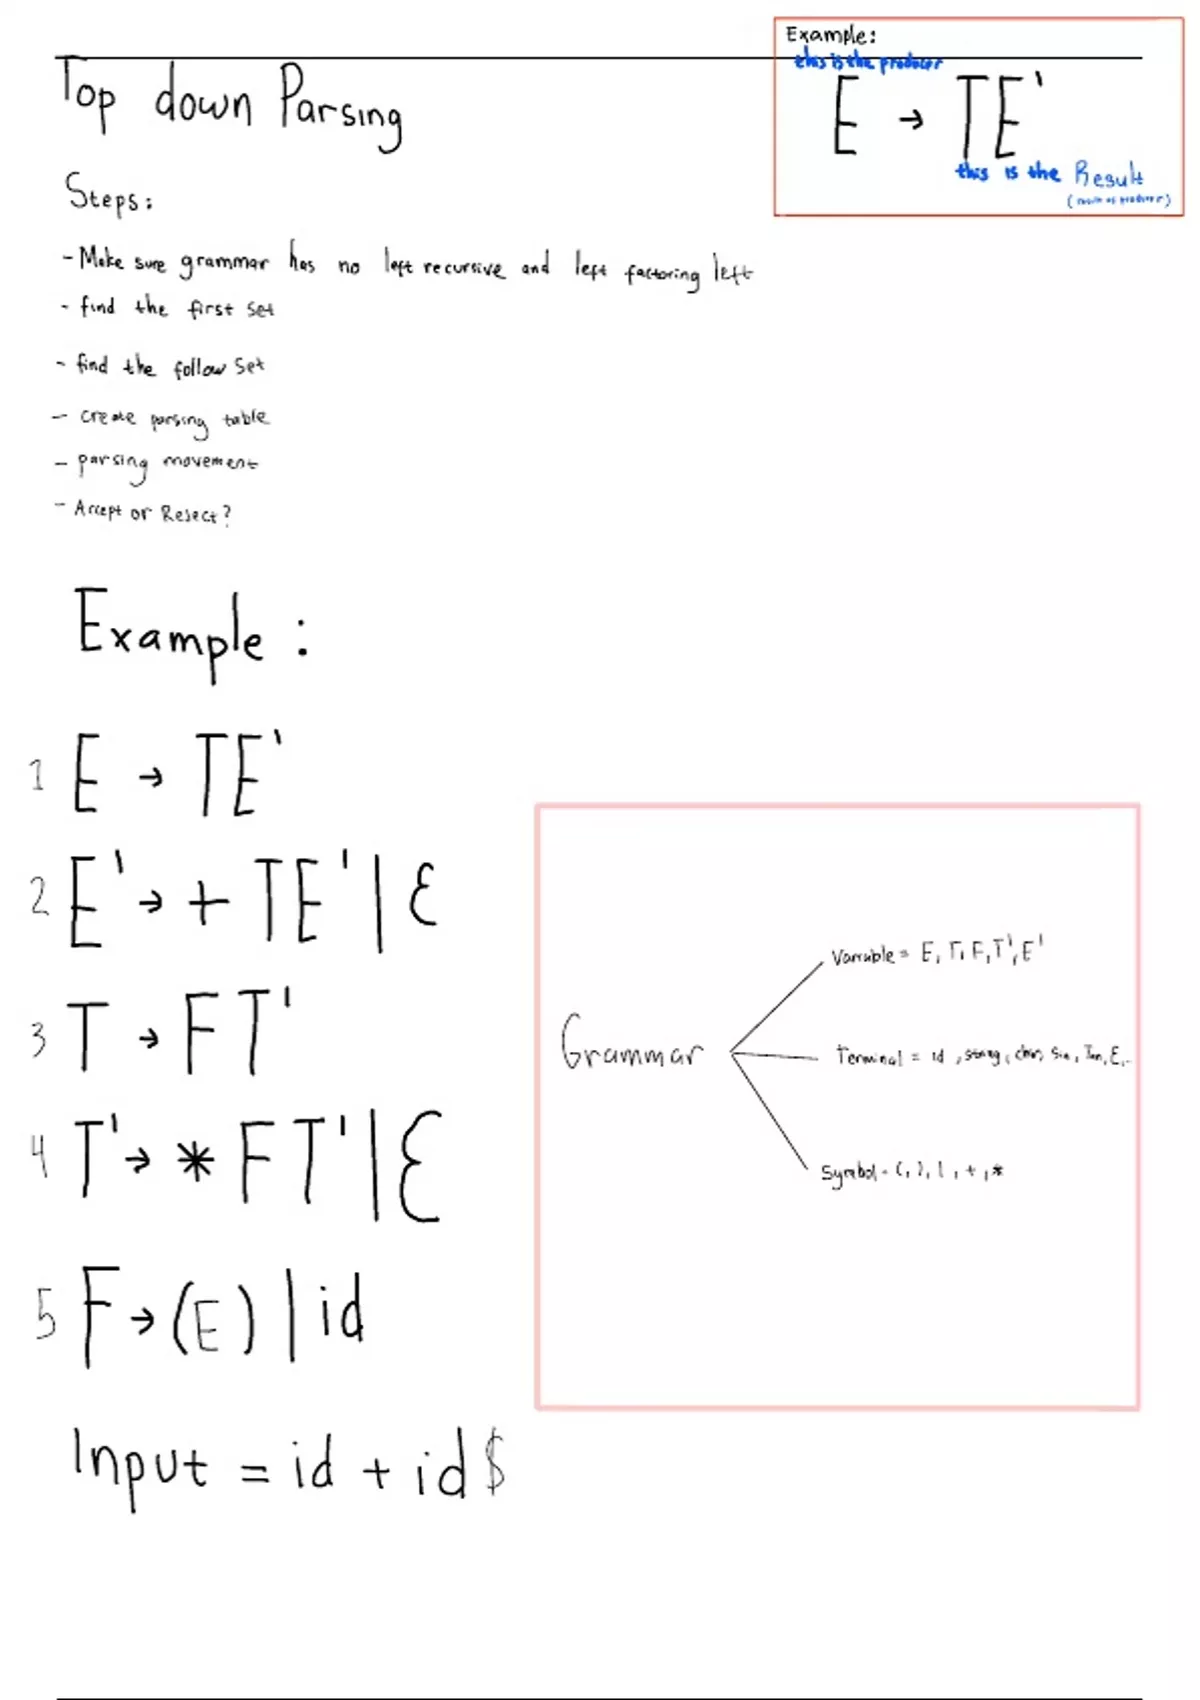 Example:
this is the producer
E → TE'
this is the Result
Top down Parsing
Steps:
- Make sure grammar has no left recursive and left factoring left
- find the first set
- find the follow set
- create parsing table
- parsing movement
- Accept or Reject?
Example :
1 E → TE'
2 E' → + TE' | ε
3 T → FT'
4 T' → * FT' | ε
5 F → (E) | id
Grammar
Variable = E, T, F, T', E'
Terminal = id , string, char, Sin, Tan, E,..
Symbol - (, ), | , + , *
Input = id + id $